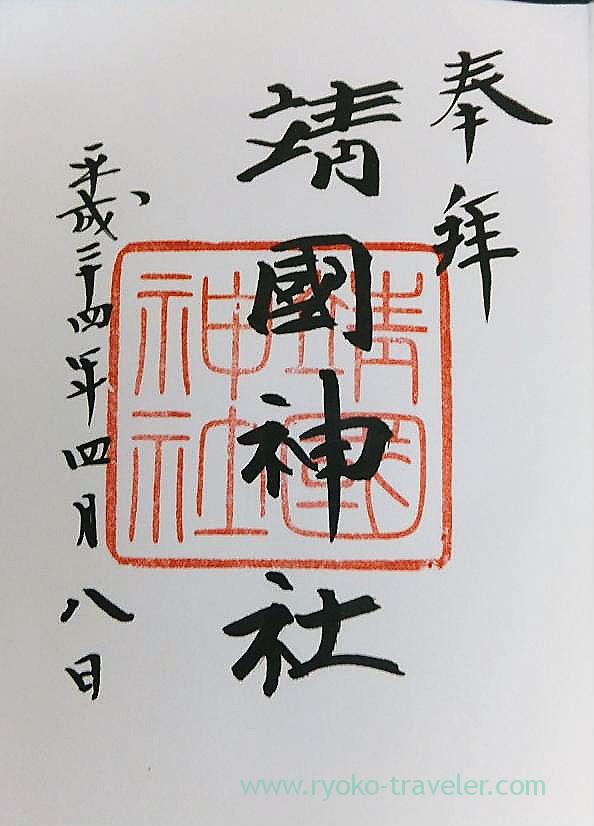 奉拝
靖國神社
靖國神社
平成二十四年四月八日
www.ryoko-traveler.com